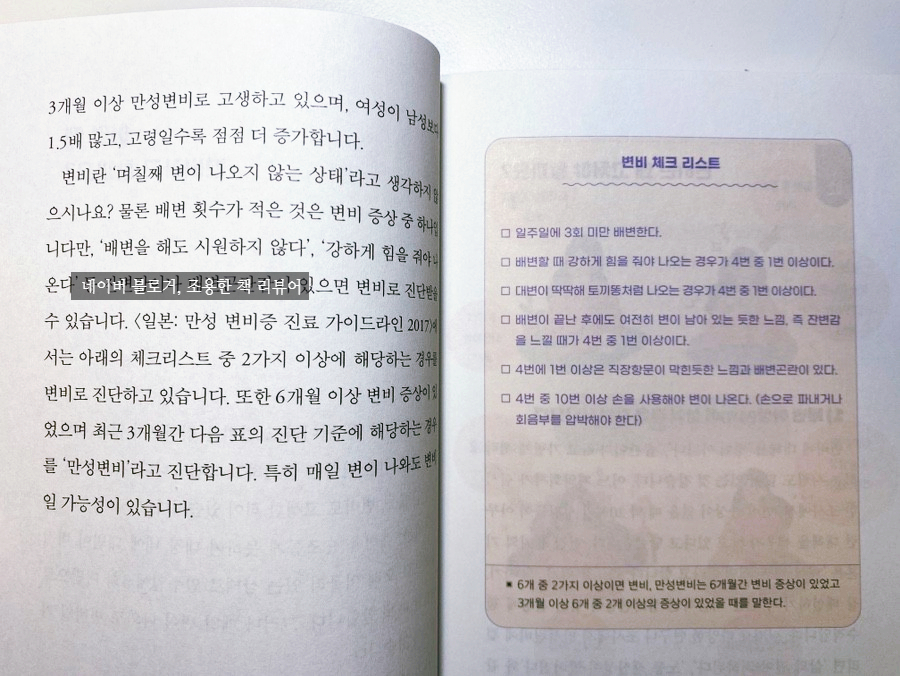 3개월 이상 만성변비로 고생하고 있으며, 여성이 남성보다
1.5배 많고, 고령일수록 점점 더 증가합니다.
변비란 '며칠째 변이 나오지 않는 상태'라고 생각하지 않
으시나요? 물론 배변 횟수가 적은 것은 변비 증상 중 하나입
니다만, '배변을 해도 시원하지 않다', '강하게 힘을 줘야 나
온다' 있으면 변비로 진단받을
네이버 블로거, 조용한 책 리뷰어.
수 있습니다. 〈일본: 만성 변비증 진료 가이드라인 2017〉에
서는 아래의 체크리스트 중 2가지 이상에 해당하는 경우를
변비로 진단하고 있습니다. 또한 6개월 이상 변비 증상이 있
었으며 최근 3개월간 다음 표의 진단 기준에 해당하는 경우
를 '만성변비'라고 진단합니다. 특히 매일 변이 나와도 변비
일 가능성이 있습니다.
변비 체크 리스트
□ 일주일에 3회 미만 배변한다.
□ 배변할 때 강하게 힘을 줘야 나오는 경우가 4번 중 1번 이상이다.
□ 대변이 딱딱해 토끼똥처럼 나오는 경우가 4번 중 1번 이상이다.
□ 배변이 끝난 후에도 여전히 변이 남아 있는 듯한 느낌, 즉 잔변감
을 느낄 때가 4번 중 1번 이상이다.
□ 4번에 1번 이상은 직장항문이 막힌듯한 느낌과 배변곤란이 있다.
□ 4번 중 10번 이상 손을 사용해야 변이 나온다. (손으로 파내거나
회음부를 압박해야 한다)
▪ 6개 중 2가지 이상이면 변비, 만성변비는 6개월간 변비 증상이 있었고
3개월 이상 6개 중 2개 이상의 증상이 있었을 때를 말한다.